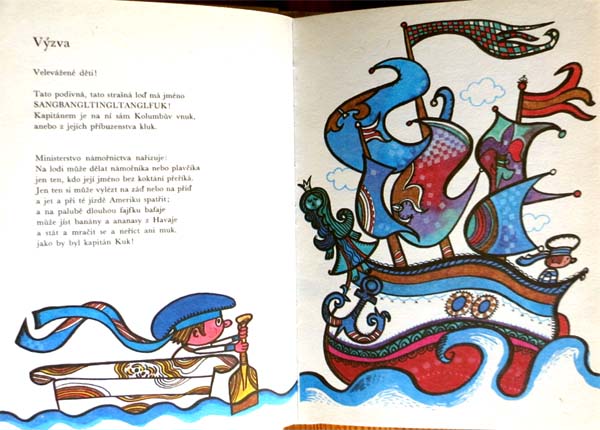 Výzva
Velevážené děti!
Tato podivná, tato strašná loď má jméno
SANGBANGLTINGLTANGLFUK!
Kapitánem je na ní sám Kolumbův vnuk,
anebo z jejich příbuzenstva kluk.
Ministerstvo námořnictva nařizuje:
Na lodi může dělat námořníka nebo plavčíka
jen ten, kdo její jméno bez koktání přeříká.
Jen ten si může vylézt na záď nebo na příď
a jet a při té jízdě Ameriku spatřit;
a na palubě dlouhou fajfku bafaje
může jíst banány a ananasy z Havaje
a stát a mračit se a neříct ani muk.
jako by byl kapitán Kuk!